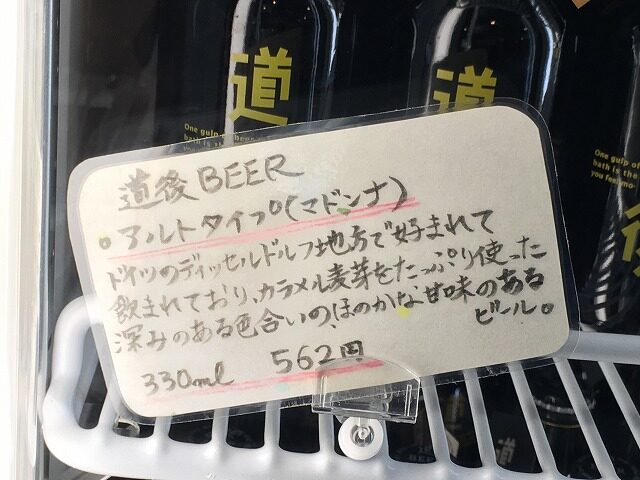 道
One gulp of
bath is the
道
One gulp of
bath is the
you feel mo
後
道後BEER
・アルトタイプ(マドンナ)
ドイツのディッセルドルフ地方で好まれて
飲まれており、カラメル麦芽をたっぷり使った
深みのある色合いの、ほのかな甘味のある
ビール。
330ml 562円
道
BEER
道